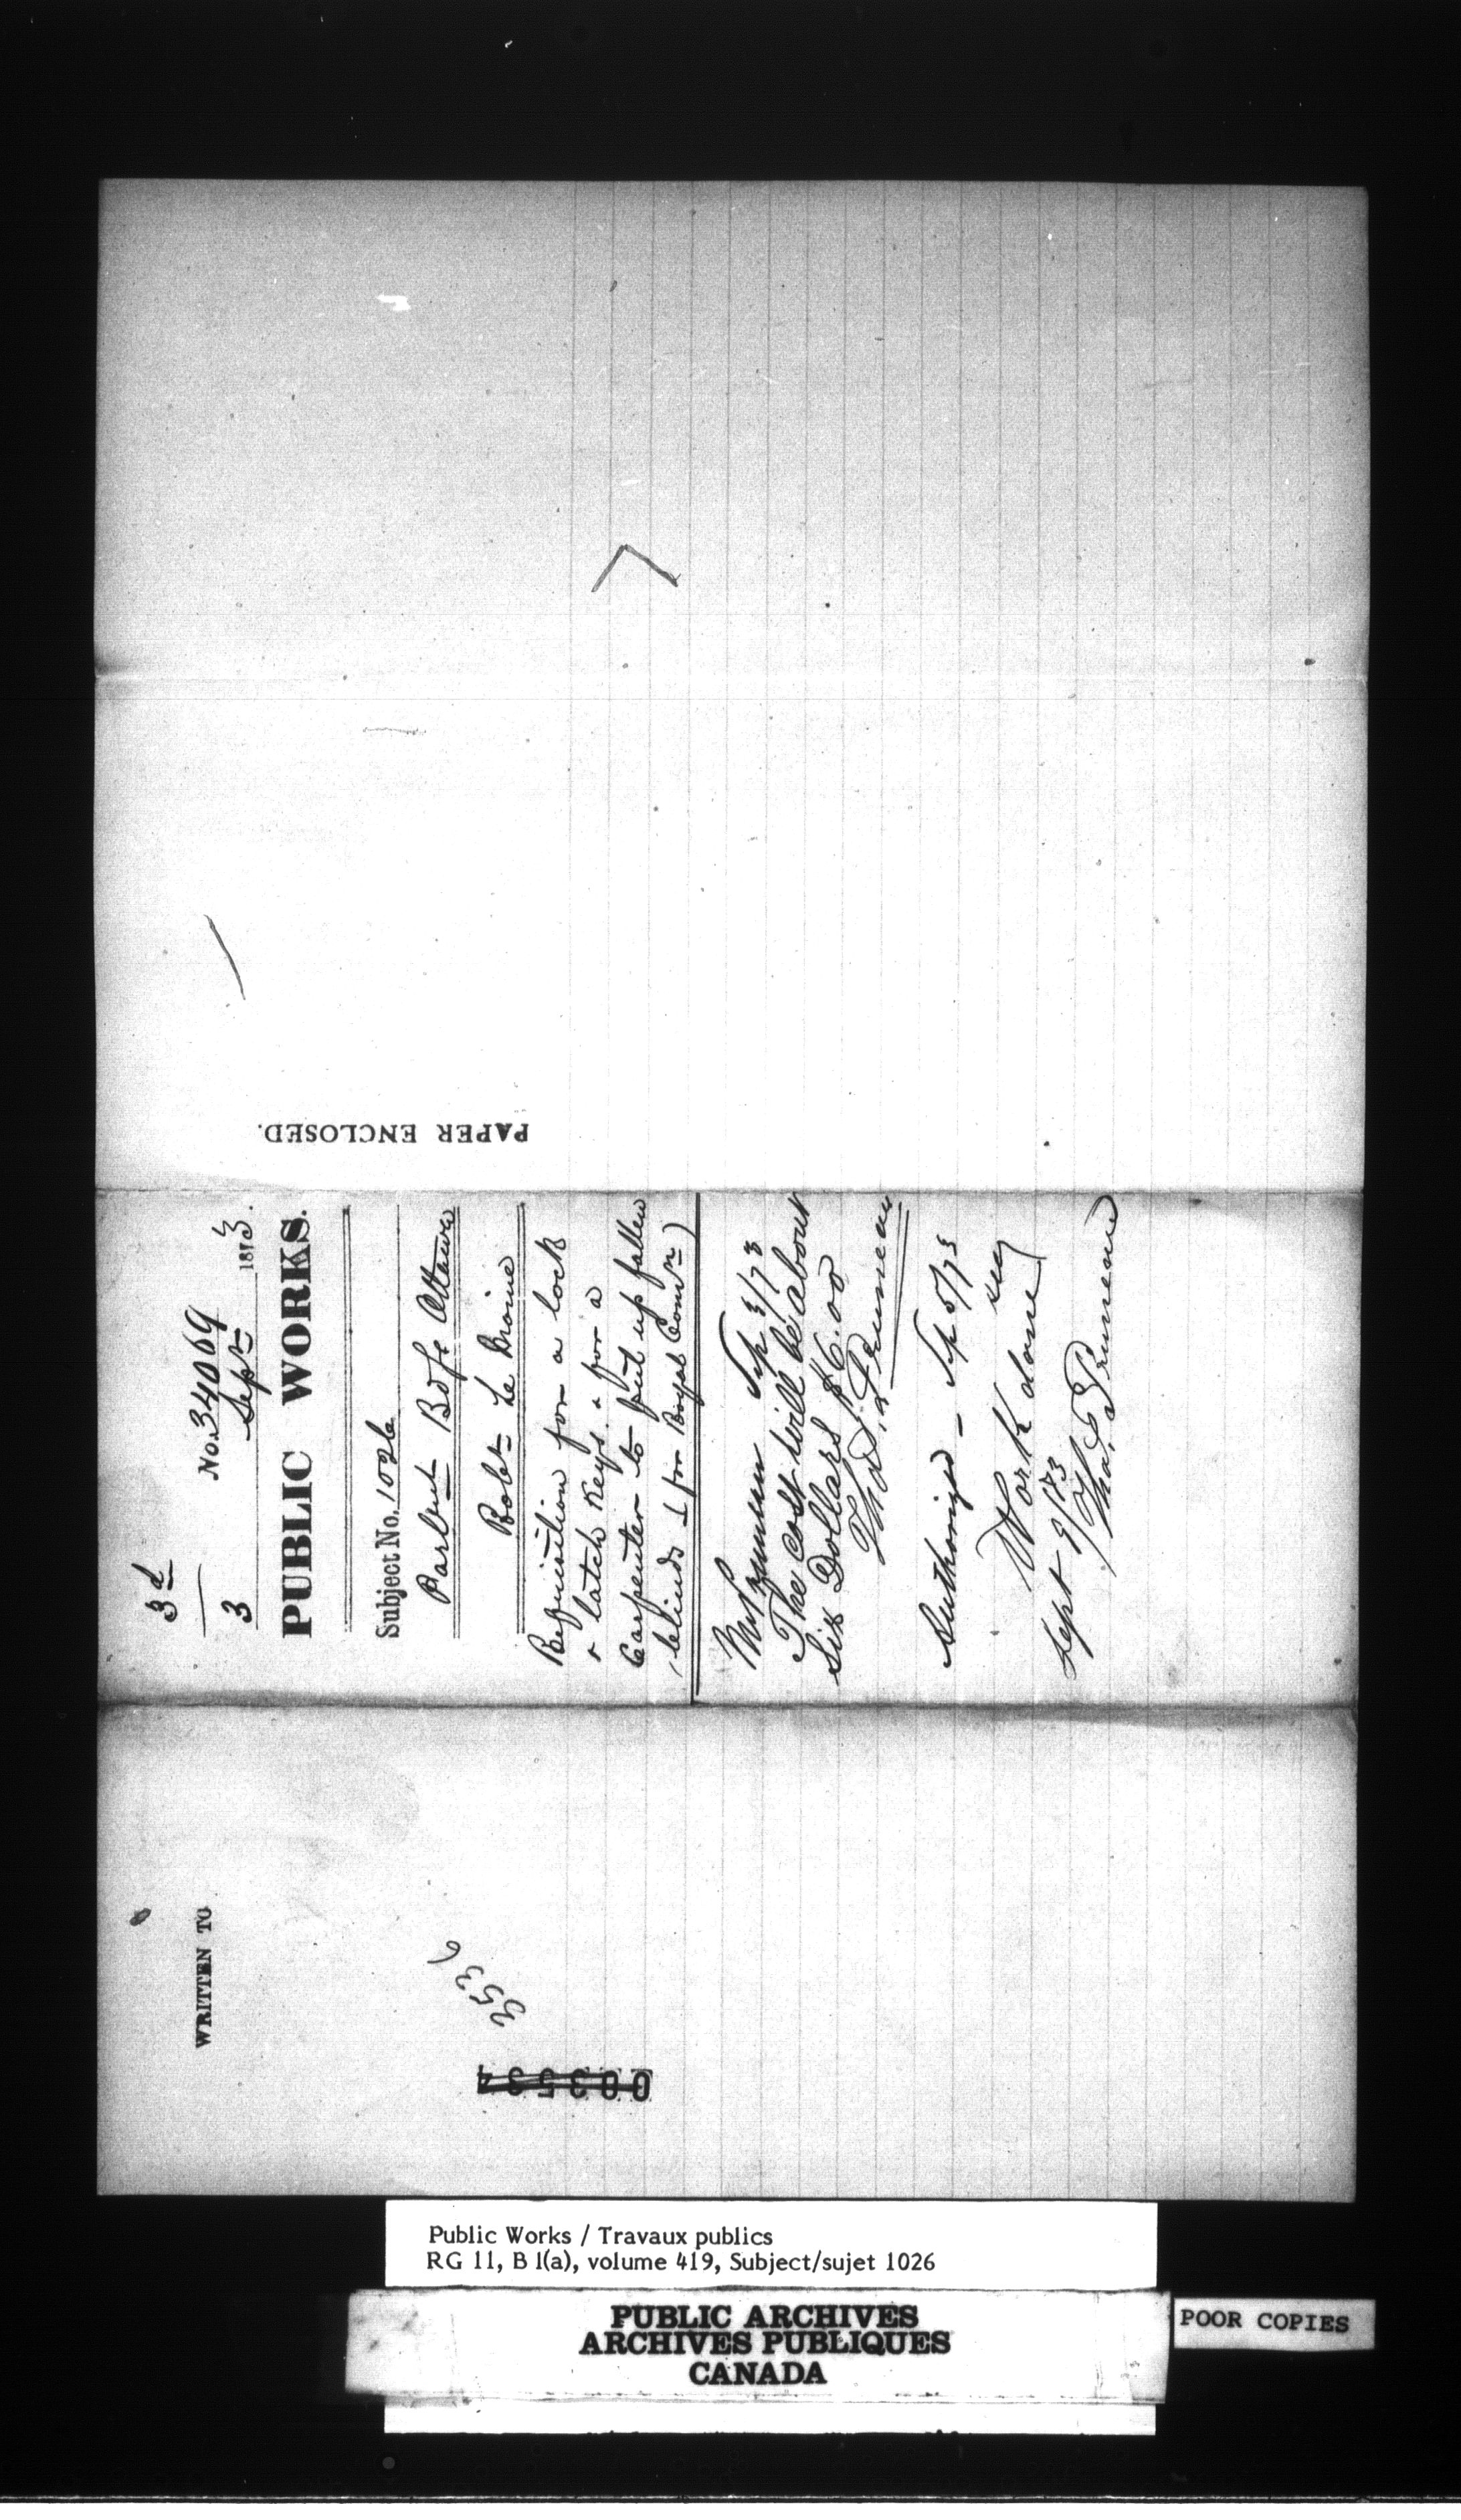 3d
No. 34069
3 Sepr 1873.
PUBLIC WORKS.
Subject No. 1026
Parlnt Bdgs Ottawa
Robt Le Moine
Requisition for a lock
& latch Keys. & for a
Carpenter to put up fallen
blinds (for Royal Comn)
Sep 3/73
The cost will be about
Six Dollars $6.00
Authorized - Sep 5/73
Work done
Sept 9/73
PAPER ENCLOSED.
WRITTEN TO
3536
003534
Public Works / Travaux publics
RG 11, B 1(a), volume 419, Subject/sujet 1026
PUBLIC ARCHIVES
ARCHIVES PUBLIQUES
CANADA
POOR COPIES